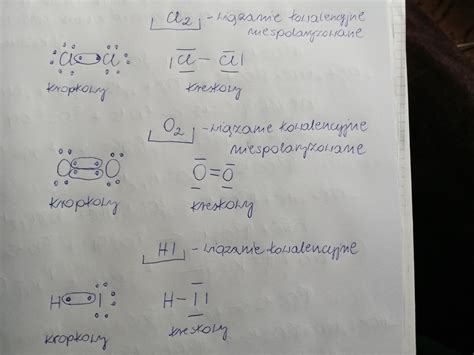 Cl2 - wiązanie kowalencyjne
niespolaryzowane
Cl Cl |Cl - Cl|
kropkowy kreskowy
O2 - wiązanie kowalencyjne
niespolaryzowane
O O O=O
kropkowy kreskowy
HI - wiązanie kowalencyjne
H I H-I|
kropkowy kreskowy